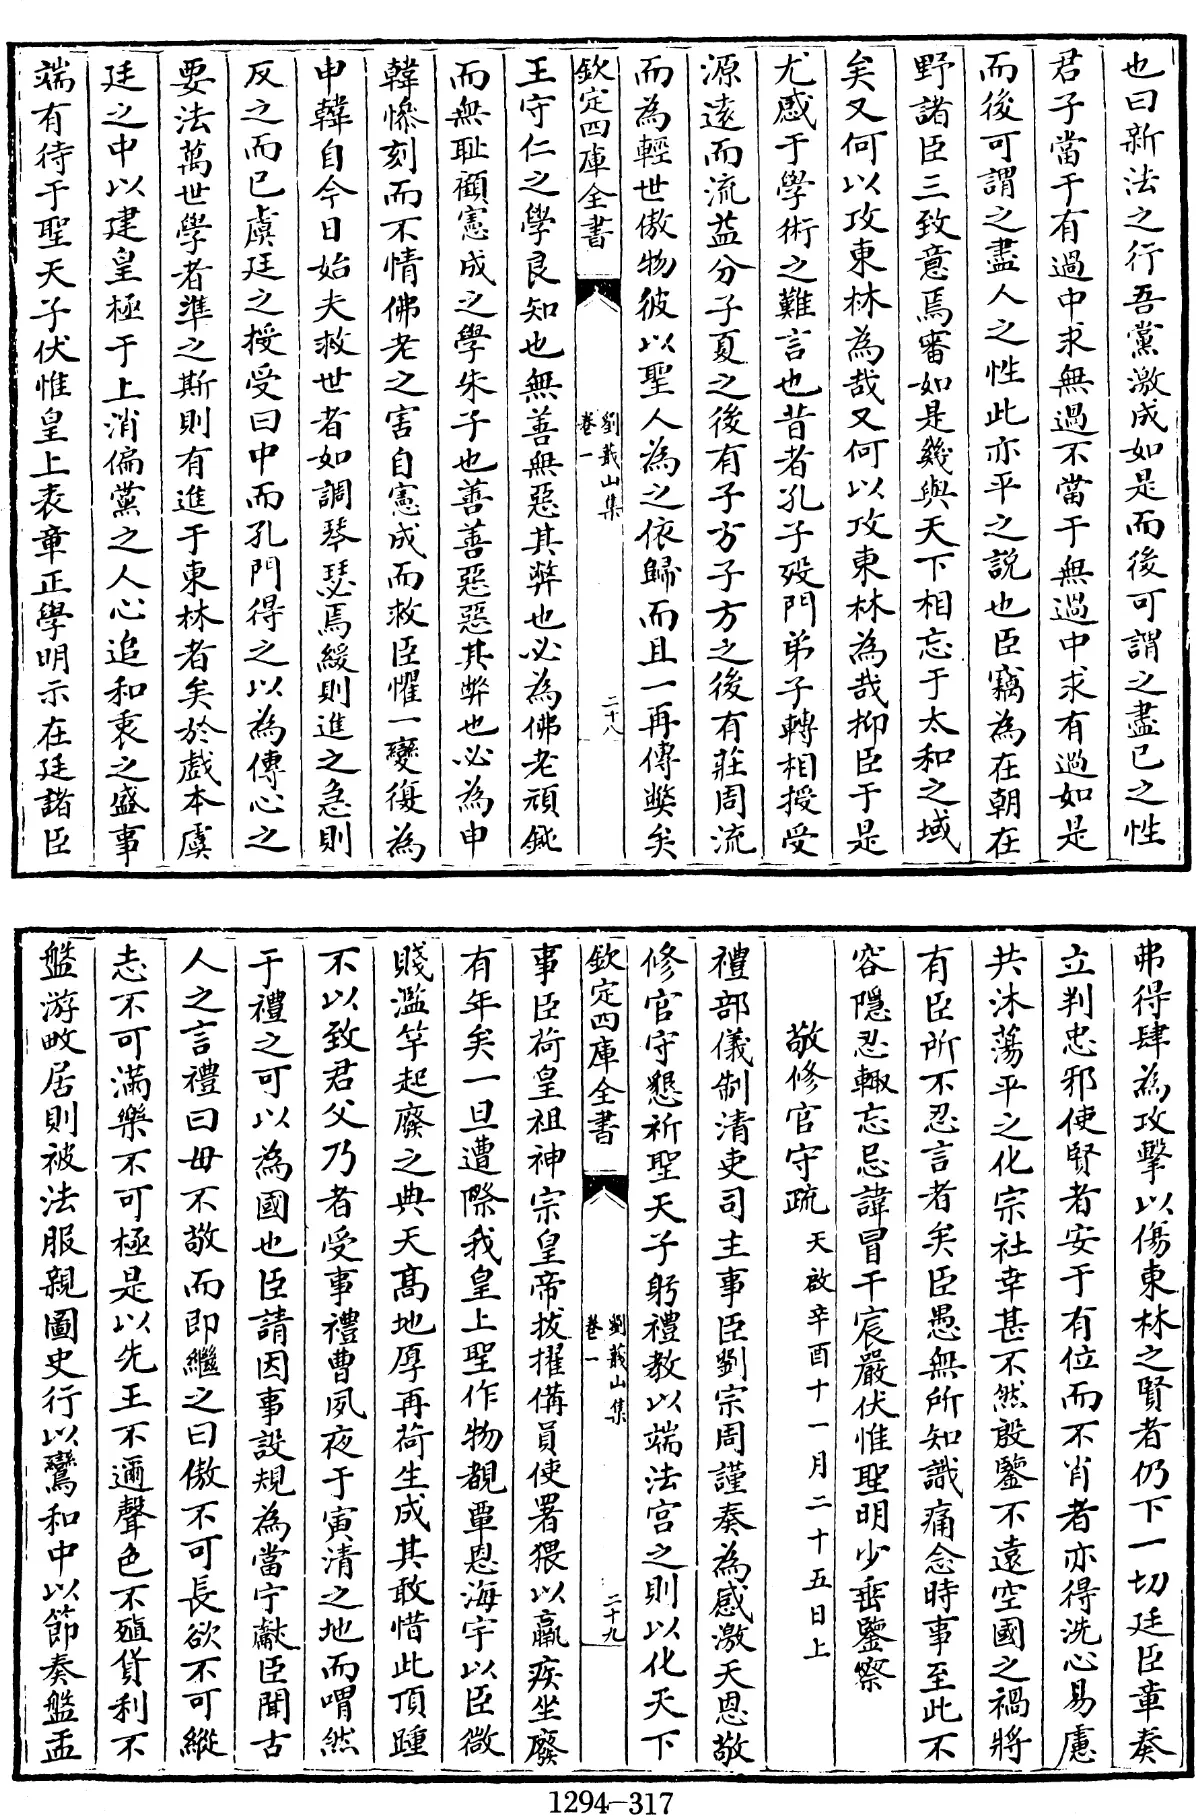 也曰新法之行吾黨激成如是而後可謂之盡己之性
君子當于有過中求無過不當于無過中求有過如是
而後可謂之盡人之性此亦平之說也臣竊為在朝在
野諸臣三致意焉審如是幾與天下相忘于太和之域
矣又何以攻東林為哉又何以攻東林為哉抑臣于是
尤感于學術之難言也昔者孔子歿門弟子轉相授受
源遠而流益分子夏之後有子方子方之後有莊周流
而為輕世傲物彼以聖人為之依歸而且一再傳弊矣
欽定四庫全書
劉蕺山集
卷一
二十八
王守仁之學良知也無善無惡其弊也必為佛老頑鈍
而無恥顧憲成之學朱子也善善惡惡其弊也必為申
韓慘刻而不情佛老之害自憲成而救臣懼一變復為
申韓自今日始夫救世者如調琴瑟焉緩則進之急則
反之而已虞廷之授受曰中而孔門得之以為傳心之
要法萬世學者準之斯則有進于東林者矣於戲本虞
廷之中以建皇極于上消偏黨之人心追和衷之盛事
端有待于聖天子伏惟皇上表章正學明示在廷諸臣
弗得肆為攻擊以傷東林之賢者仍下一切廷臣章奏
立判忠邪使賢者安于有位而不肖者亦得洗心易慮
共沐蕩平之化宗社幸甚不然殷鑒不遠空國之禍將
有臣所不忍言者矣臣愚無所知識痛念時事至此不
容隱忍輒忘忌諱冒干宸嚴伏惟聖明少垂鑒察
敬修官守疏 天啟辛酉十一月二十五日上
禮部儀制清吏司主事臣劉宗周謹奏為感激天恩敬
修官守懇祈聖天子躬禮教以端法宮之則以化天下
欽定四庫全書
劉蕺山集
卷一
二十九
事臣荷皇祖神宗皇帝拔擢備員使署猥以羸疾坐廢
有年矣一旦遭際我皇上聖作物覩覃恩海宇以臣微
賤濫竽起廢之典天高地厚再荷生成其敢惜此頂踵
不以致君父乃者受事禮曹夙夜于寅清之地而喟然
于禮之可以為國也臣請因事設規為當宁獻臣聞古
人之言禮曰毋不敬而即繼之曰傲不可長欲不可縱
志不可滿樂不可極是以先王不邇聲色不殖貨利不
盤游畋居則被法服親圖史行以鸞和中以節奏盤盂
1294-317